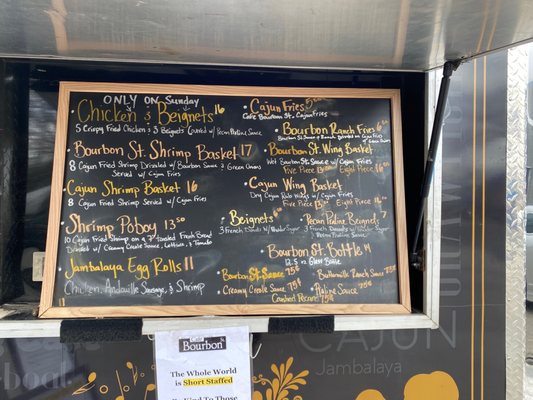 ONLY ON Sunday
Chicken & Beignets 16
5 Crispy Fried Chicken & 3 Beignets Covered w/ Pecan Praline Sauce
Bourbon St. Shrimp Basket 17
8 Cajun Fried Shrimp Drizzled w/ Bourbon Sauce & Green Onions
Served w/ Cajun Fries
Cajun Shrimp Basket 16
8 Cajun Fried Shrimp Served w/ Cajun Fries
Shrimp Poboy 13.50
10 Cajun Fried Shrimp on a 7" Toasted French Bread
Drizzled w/ Creamy Creole Sauce, Lettuce, & Tomato
Jambalaya Egg Rolls 11
Chicken, Andouille Sausage, & Shrimp
Cajun Fries
Cafe Bourbon St. Cajun Fries
Bourbon Ranch Fries
Bourbon St. Wing Basket
Wet Bourbon St. Sauce w/ Cajun Fries
Five Piece Eight Piece
Cajun Wing Basket
Dry Cajun Rub Wings w/ Cajun Fries
Five Piece Eight Piece
Beignets
3 French Donuts w/ Powder Sugar
Pecan Praline Beignet
3 French Donuts w/ Powder Sugar
Praline Sauce
Bourbon St. Bottle 14
12 oz Glass Bottle
Bourbon St. Sauce 75¢
Buttermilk Ranch Sauce 75¢
Creamy Creole Sauce 75¢
Praline Sauce 75¢
Crushed Pecans 75¢
Bourbon
The Whole World
is Short Staffed
Be Kind To Those
CAJUN
Jambalaya
boat